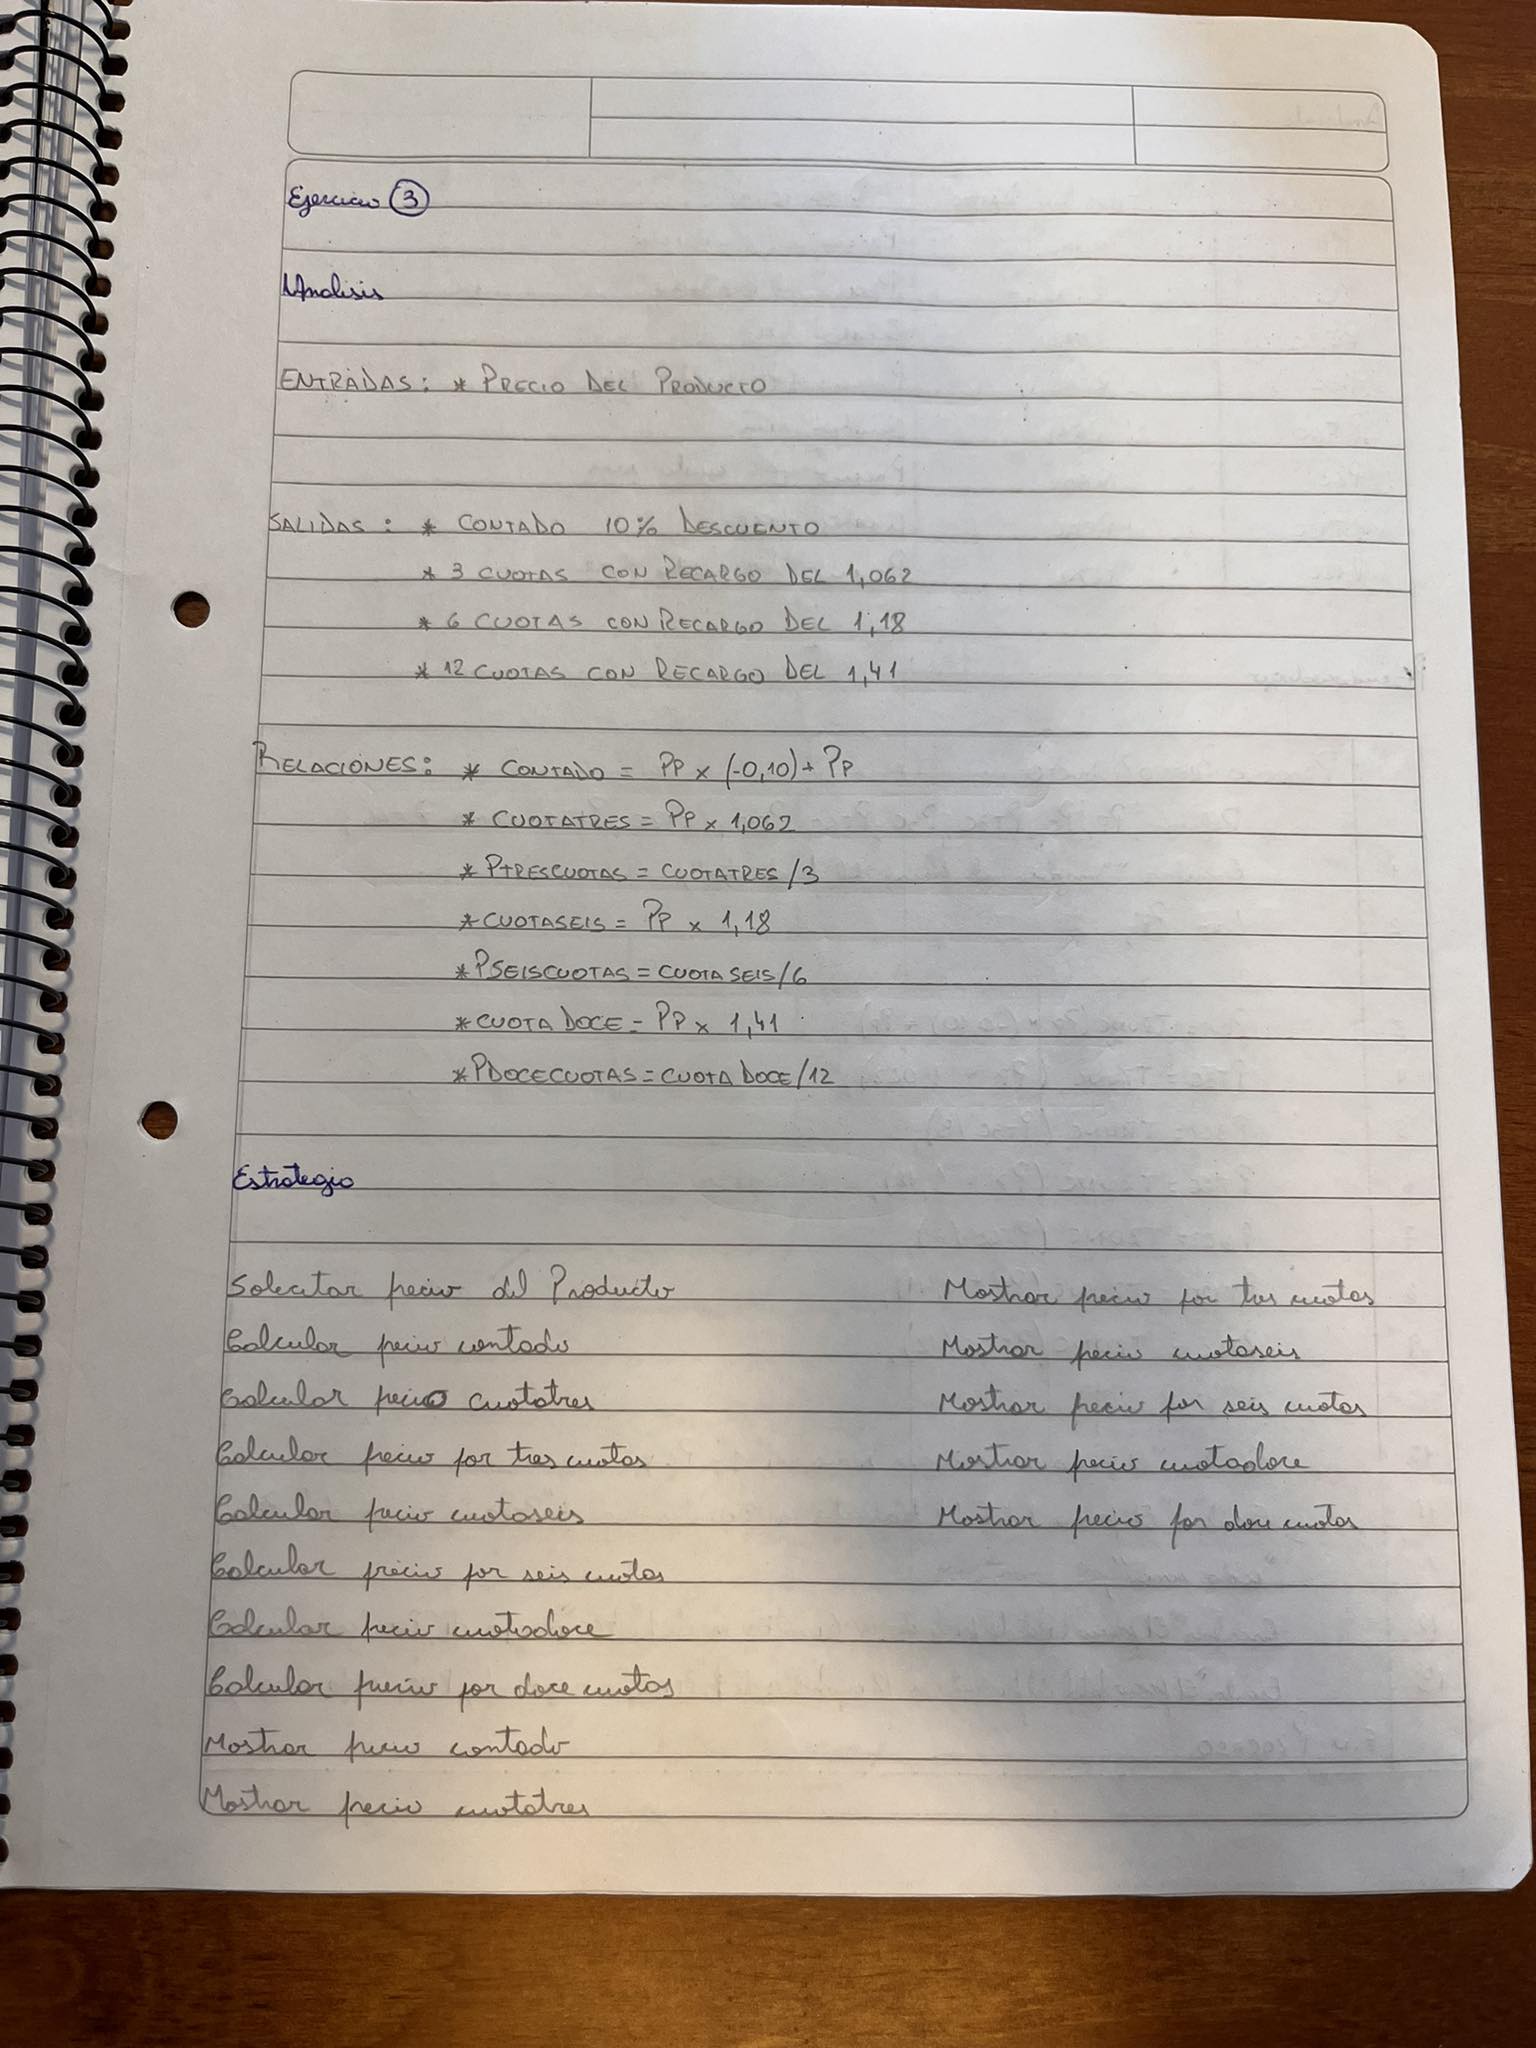 Ejercicio 3
Analisis
ENTRADAS: * PRECIO DEL PRODUCTO
SALIDAS: * CONTADO 10% DESCUENTO
* 3 CUOTAS CON RECARGO DEL 1,062
* 6 CUOTAS CON RECARGO DEL 1,18
* 12 CUOTAS CON RECARGO DEL 1,41
RELACIONES: * CONTADO = Pp x (-0,10) + Pp
* CUOTATRES = Pp x 1,062
* PTRESCUOTAS = CUOTATRES/3
* CUOTASEIS = Pp x 1,18
* PSEISCUOTAS = CUOTASEIS/6
* CUOTADOCE = Pp x 1,41
* PDOCECUOTAS = CUOTADOCE/12
Estrategia
Solicitar precio del Producto
Calcular precio contado
Calcular precio cuotatres
Calcular precio por tres cuotas
Calcular precio cuotaseis
Calcular precio por seis cuotas
Calcular precio cuotadoce
Calcular precio por doce cuotas
Mostrar precio contado
Mostrar precio cuotatres
Mostrar precio por tres cuotas
Mostrar precio cuotaseis
Mostrar precio por seis cuotas
Mostrar precio cuotadoce
Mostrar precio por doce cuotas